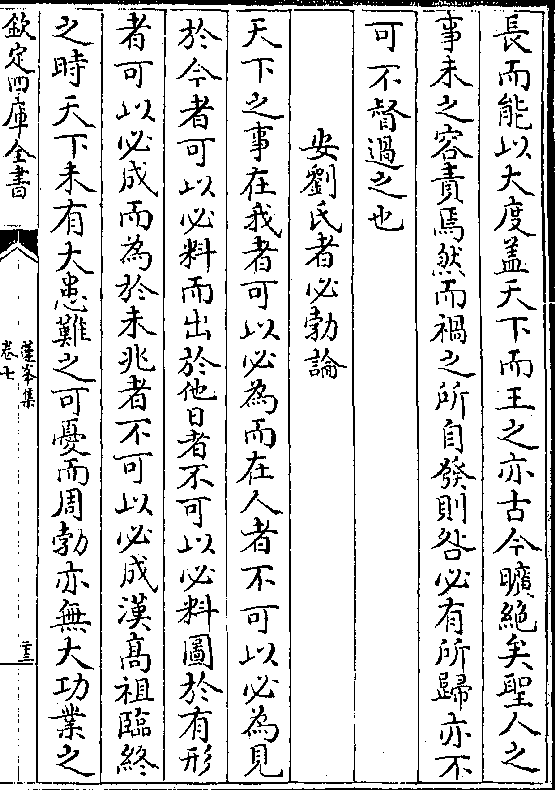 長而能以大度盖天下而王之亦古今曠絶矣聖人之
事未之容責焉然而禍之所自發則咎必有所歸亦不
可不督過之也
安劉氏者必勃論
天下之事在我者可以必為而在人者不可以必為見
於今者可以必料而出於他日者不可以必料圖於有形
者可以必成而為於未兆者不可以必成漢髙祖臨終
之時天下未有大患難之可憂而周勃亦無大功業之
欽定四庫全書
蓮峯集
卷七